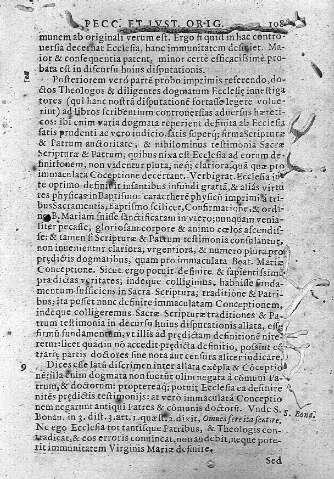 PECC. ET IUST. ORIG. 108
munem ab originali verum est. Ergo si quid in hac contro-
uersia decernat Ecclesia, hanc immunitatem definiet. Ma-
ior & consequentia patent, minor certe efficacissime pro-
bata est in discursu huius disputationis.
8 Posteriorem verò partē probo imprimis referendo, do-
ctos Theologos & diligentes dogmatum Ecclesię inuestiga
tores (qui hanc nostrā disputationē fortasse legere volue-
rint) ad libros scribentium controuersias aduersus hæreti-
cos: ibi enim varia dogmata reperiet definita ab Ecclesia
satis prudenti ac vero iudicio, satis superq; firma Scripturæ
& Patrum auctoritate, & nihilominus testimonia Sacræ
Scripturæ & Patrum, quibus nixa est Ecclesia ad eorum de-
finitionem, non videntur plura, neq; clariora, quā quæ pro
immaculata Conceptione decertant. Verbi grat. Ecclesia iu-
re optimo definit infantibus infundi gratiā, & alias virtu
tes physicas in Baptismo: characterē physicē imprimi à tri-
bus Sacramentis, Baptismo scilicet, Confirmatione, & ordi-
ne: B. Mariam fuisse sanctificatam in vtero; nunquam venia-
liter pecasse, gloriosam corpore & animo cœlos ascendis-
se: & tamen si Scripturæ & Patrum testimonia consulantur,
non inuenientur clariora, vrgentiora, & numero plura pro
prędictis dogmatibus, quam pro immaculata Beat. Mariæ
Conceptione. Sicut ergo potuit definire & sapientissimè
prædictas veritates, indeque colligimus, habuisse funda-
mentum sufficiens in Sacra Scriptura, traditione & Patri-
bus; ita posset nunc definire immaculatam Conceptionem,
indeque colligeremus Sacræ Scripturæ traditiones & Pa-
trum testimonia in decursu huius disputationis allata, esse
firmū fundamentum, vt illis ad prędictam definitionē nite-
retur: licet quādiu nō accedit prædicta definitio, possint cō-
trariæ partis doctores sine nota aut censura aliter iudicare.
9 Dices esse latū discrimen inter allata exēpla & Cōceptio
nē; illa enim dogmata non sūt ūt olim negata à cōmuni Pa-
trum, & doctorum: propterea q; potuit Ecclesia ea definire
nitēs prędictis testimonijs: at verò immaculatā Conceptio
nem negarunt antiqui Patres & cōmunis doctorū. Vnde S.
Bonau. in 3. dist. 3. art. 1. quæst. 2. dixit, Omnes ferè ita sentire. S. Bona.
Ne ego Ecclesia tot tantisque Patribus, & Theologis con-
tradicat, & eos erroris conuincat, non audebit, neque pote-
rit immunitatem Virginis Mariæ definire.
Sed